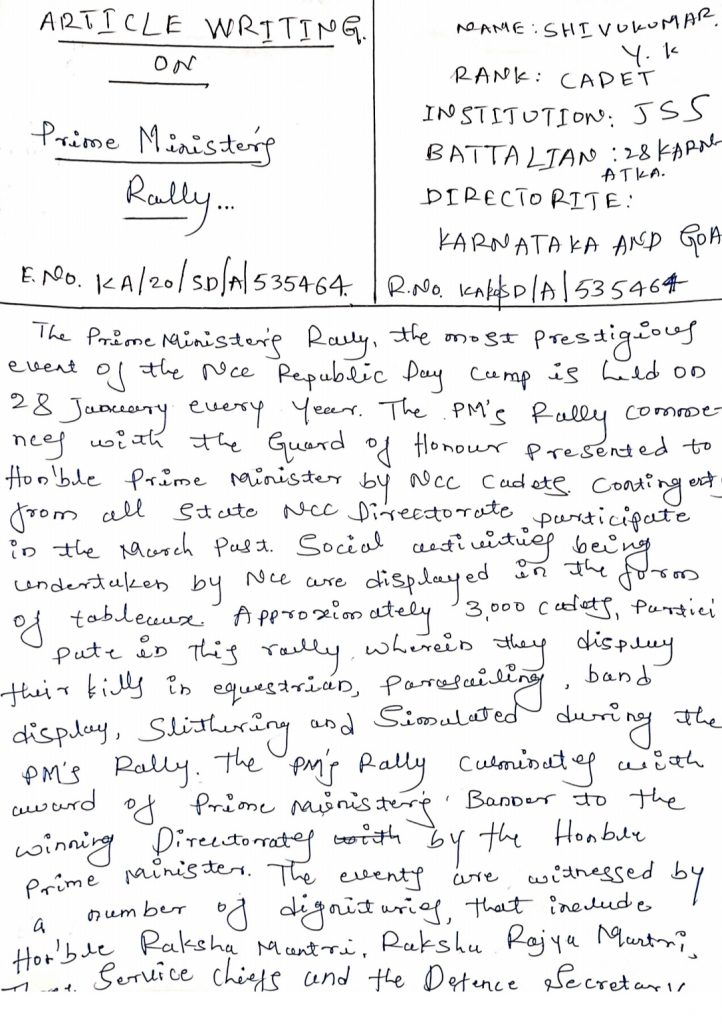 ARTICLE WRITING.
ON
Prime Minister's
Rally...
E.No. KA/20/SD/A/535464.
NAME: SHIVUKUMAR.
Y. K
RANK: CADET
INSTITUTION: JSS
BATTALIAN: 28 KARN
ATKA.
DIRECTORITE:
KARNATAKA AND GOA
R.No. SD/A/535464
The Prime Minister's Rally, the most prestigious
event of the Ncc Republic Day Camp is held on
28 January every year. The PM's Rally comme-
nces with the Guard of Honour presented to
Hon'ble Prime Minister by Ncc Cadets. Contingent
from all State NCC Directorate participate
in the March Past. Social activities being
undertaken by Ncc are displayed in the form
of tableaux. Approximately 3,000 cadets, partici
pate in this rally, wherein they display
their kills in equestrian, parasailing, band
display, Slithering and Simulated during the
PM's Rally. The PM's Rally culminates with
award of Prime Minister's Banner to the
winning Directorates with by the Honble
Prime Minister. The events are witnessed by
a number of dignitaries, that include
Hon'ble Raksha Mantri, Raksha Rajya Mantri,
Service chiefs and the Defence Secretary